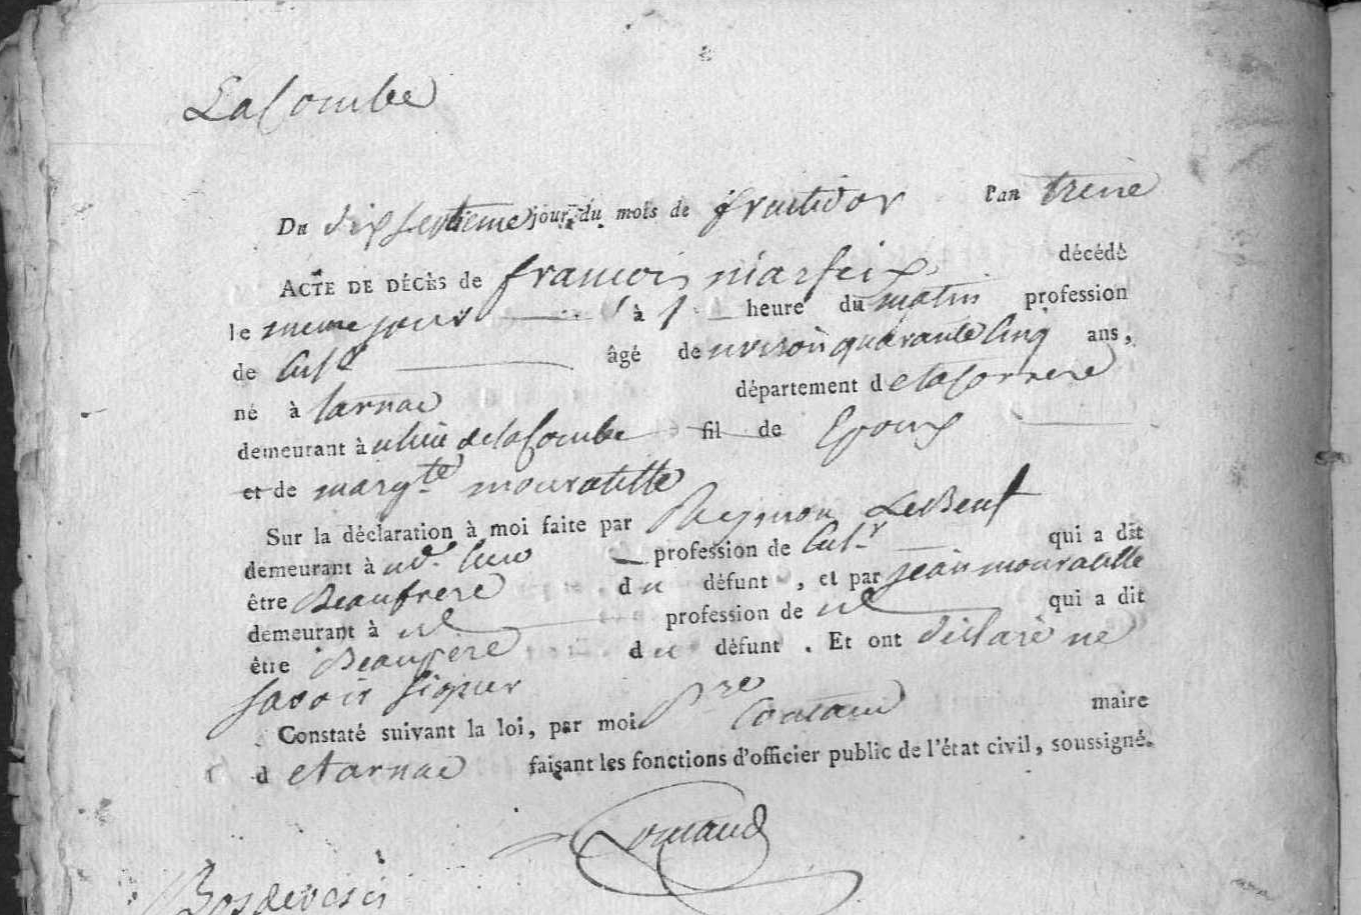 LaCombe
Du dixseptieme jour du mois de fructidor l'an treise
ACTE DE DÉCÈS de francois décédé
le meme jour à 1 heure du matin profession
de Cult.r âgé de quarante Cinq ans,
né à tarnac département d elaCorreze
demeurant à delaCombe fil de Epoux
et de marg.te mouratille
Sur la déclaration à moi faite par LeBeuf
demeurant à ud. lieu profession de Cult.r qui a dit
être Beaufrere du défunt, et par jean mouratille
demeurant à id profession de id qui a dit
être Beaupere du défunt. Et ont déclaré ne
savoir signer
Constaté suivant la loi, par moi P.re maire
d etarnac faisant les fonctions d'officier public de l'état civil, soussigné.